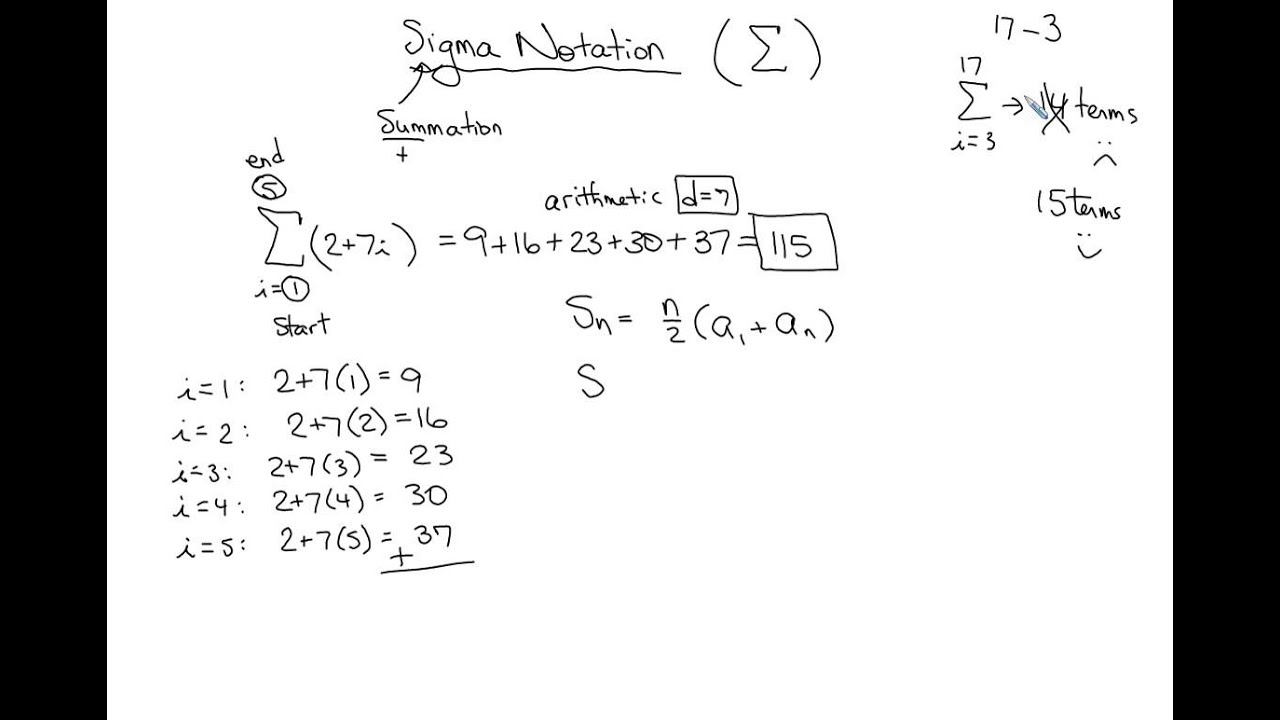 Sigma Notation (Σ)
Summation
+
end
5
Σ(2+7i) = 9+16+23+30+37 = 115
i=1
Start
arithmetic d=7
Sn = n/2 (a₁ + aₙ)
S
i=1: 2+7(1) = 9
i=2: 2+7(2) = 16
i=3: 2+7(3) = 23
i=4: 2+7(4) = 30
i=5: 2+7(5) = 37
+
17-3
17
Σ → 14 terms
i=3
15 terms